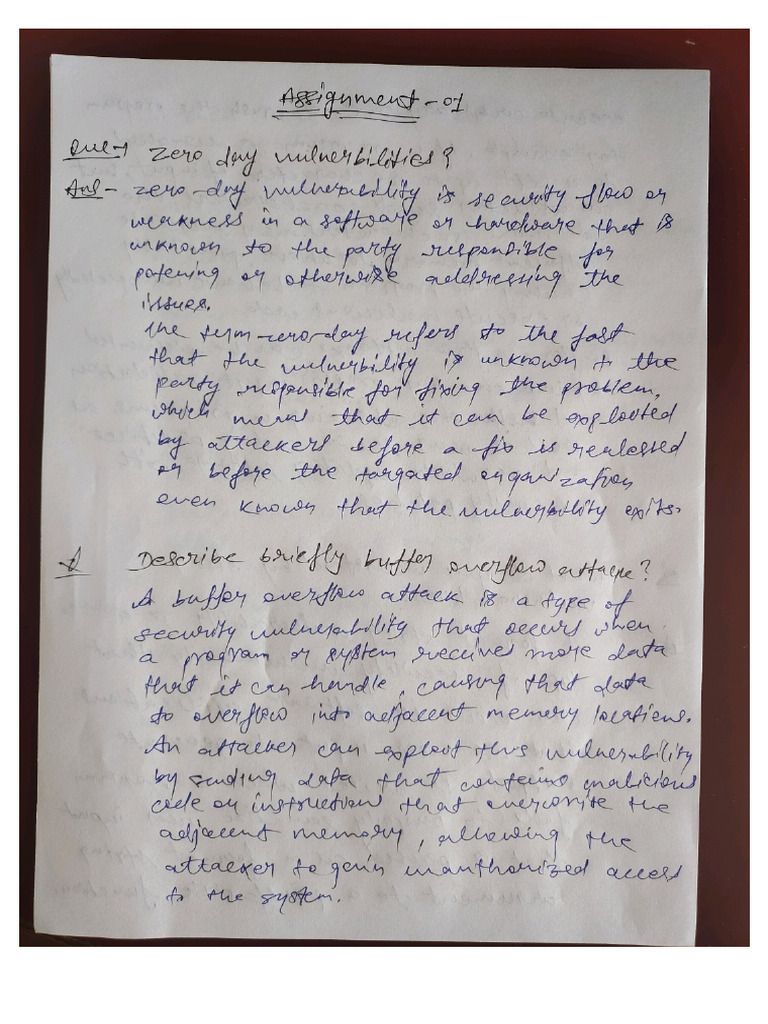 Assignment - 01
Que-1 Zero day vulnerbilities?
Ans - zero-day vulnerability is security flow or
weakness in a software or hardware that is
unknown to the party responsible for
patening or otherwise addressing the
issues.
the term zero-day refers to the fast
that the vulnerbility is unknown to the
party responsible for fixing the problem,
which means that it can be exploited
by attackers before a fix is realessed
or before the targated organization
even known that the vulnerbility exits.
Describe briefly buffer overflow attack?
A buffer overflow attack is a type of
security vulnerability that occurs when
a program or system receives more data
that it can handle, causing that data
to overflow into adjacent memory locations.
An attacker can exploit this vulnerability
by sending data that contains malicious
code or instructions that overwrite the
adjacent memory, allowing the
attacker to gain unauthorized access
to the system.